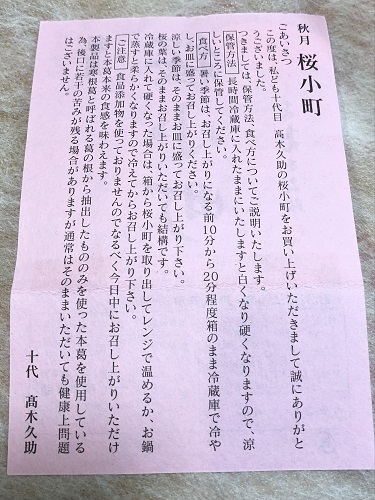 秋月 桜小町
ごあいさつ
この度は、私ども十代目 髙木久助の桜小町をお買い上げいただきまして誠にありがと
うございました。
つきましては、保管方法、食べ方についてご説明いたします。
保管方法 長時間冷蔵庫に入れたままにいたしますと白くなり硬くなりますので、涼
しいところに保管してください。
食べ方 暑い季節は、お召し上がりになる前10分から20分程度箱のまま冷蔵庫で冷や
し、お皿に盛ってお召し上がりください。
涼しい季節は、そのままお皿に盛ってお召し上がり下さい。
桜の葉は、そのままお召し上がりいただいても結構です。
冷蔵庫に入れて硬くなった場合は、箱から桜小町を取り出してレンジで温めるか、お鍋
で蒸すと柔らかくなりますので冷えてからお召し上がり下さい。
ご注意 食品添加物を使っておりませんのでなるべく今日中にお召し上がりいただけ
ますと本葛本来の食感を味わえます。
本製品は寒根葛と呼ばれる葛の根から抽出したもののみを使った本葛を使用している
為、後口に若干の苦みが残る場合がありますが通常はそのままいただいても健康上問題
はございません。
十代 髙木久助